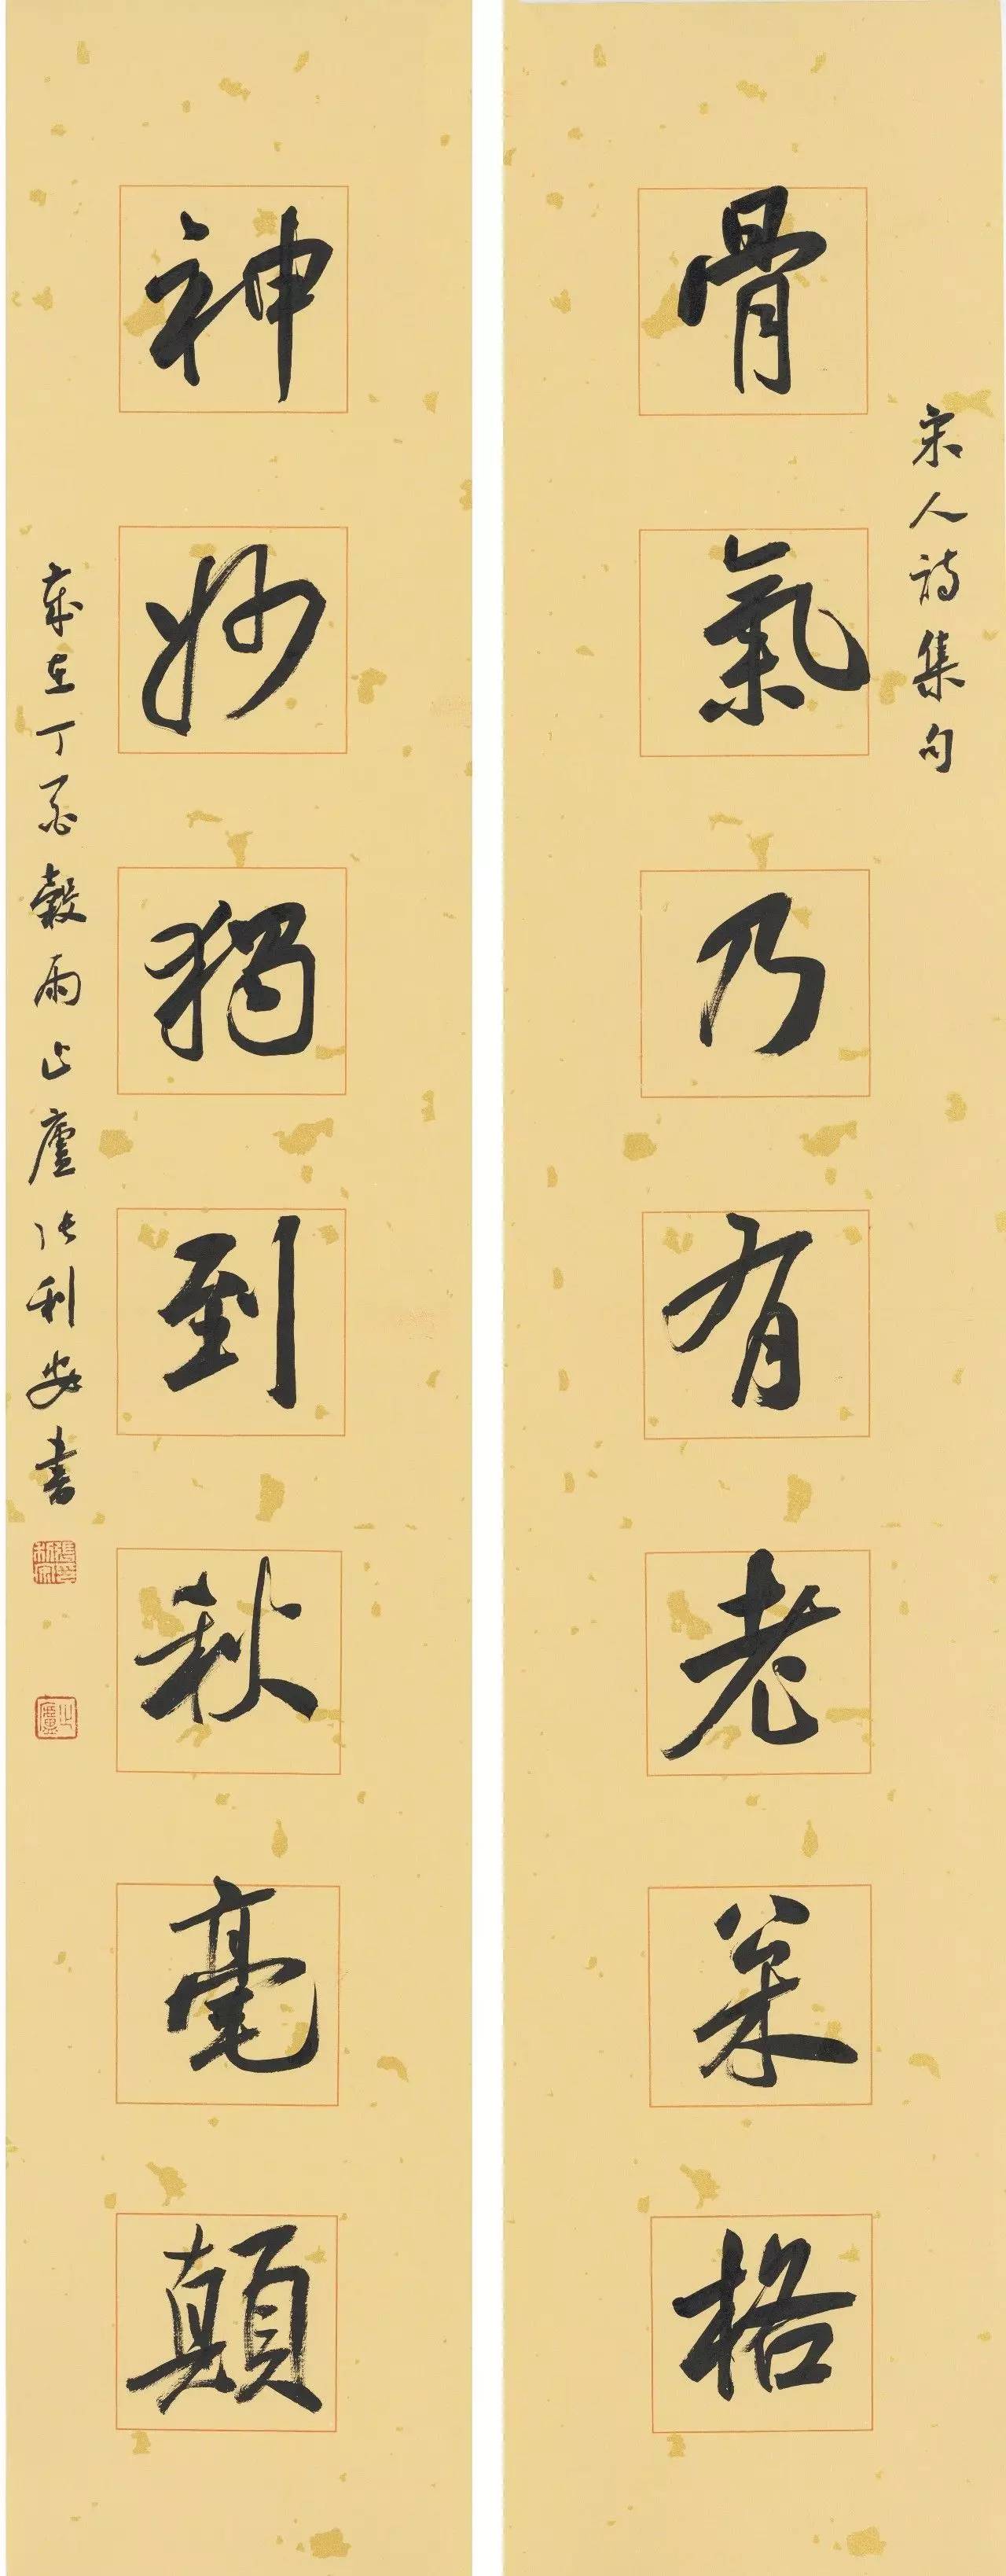 宋人詩集句
骨氣乃有老枀格
神妙獨到秋毫顛
歲在丁酉穀雨止廬張利安書
止廬